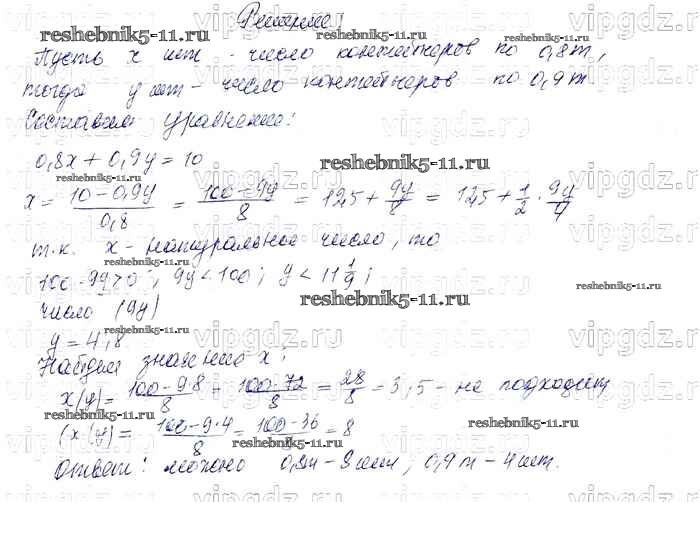 Решение:
Пусть х шт - число контейнеров по 0,8т,
тогда у шт - число контейнеров по 0,9т.
Составим уравнение:
0,8x + 0,9y = 10
x = (10 - 0,9y)/0,8 = (100 - 9y)/8 = 12,5 + 9y/8 = 12,5 + 1/2 · 9y/4
т.к. х - натуральное число, то
100 - 9y > 0; 9y < 100; y < 11 1/9;
число (9y)
y = 4,8
Найдем значение х:
x(y) = (100 - 9·8)/8 = (100 - 72)/8 = 28/8 = 3,5 - не подходит
(x(y) = (100 - 9·4)/8 = (100 - 36)/8 = 8
Ответ: можно 0,8т - 8 шт, 0,9т - 4 шт.
reshebnik5-11.ru
vipgdz.ru